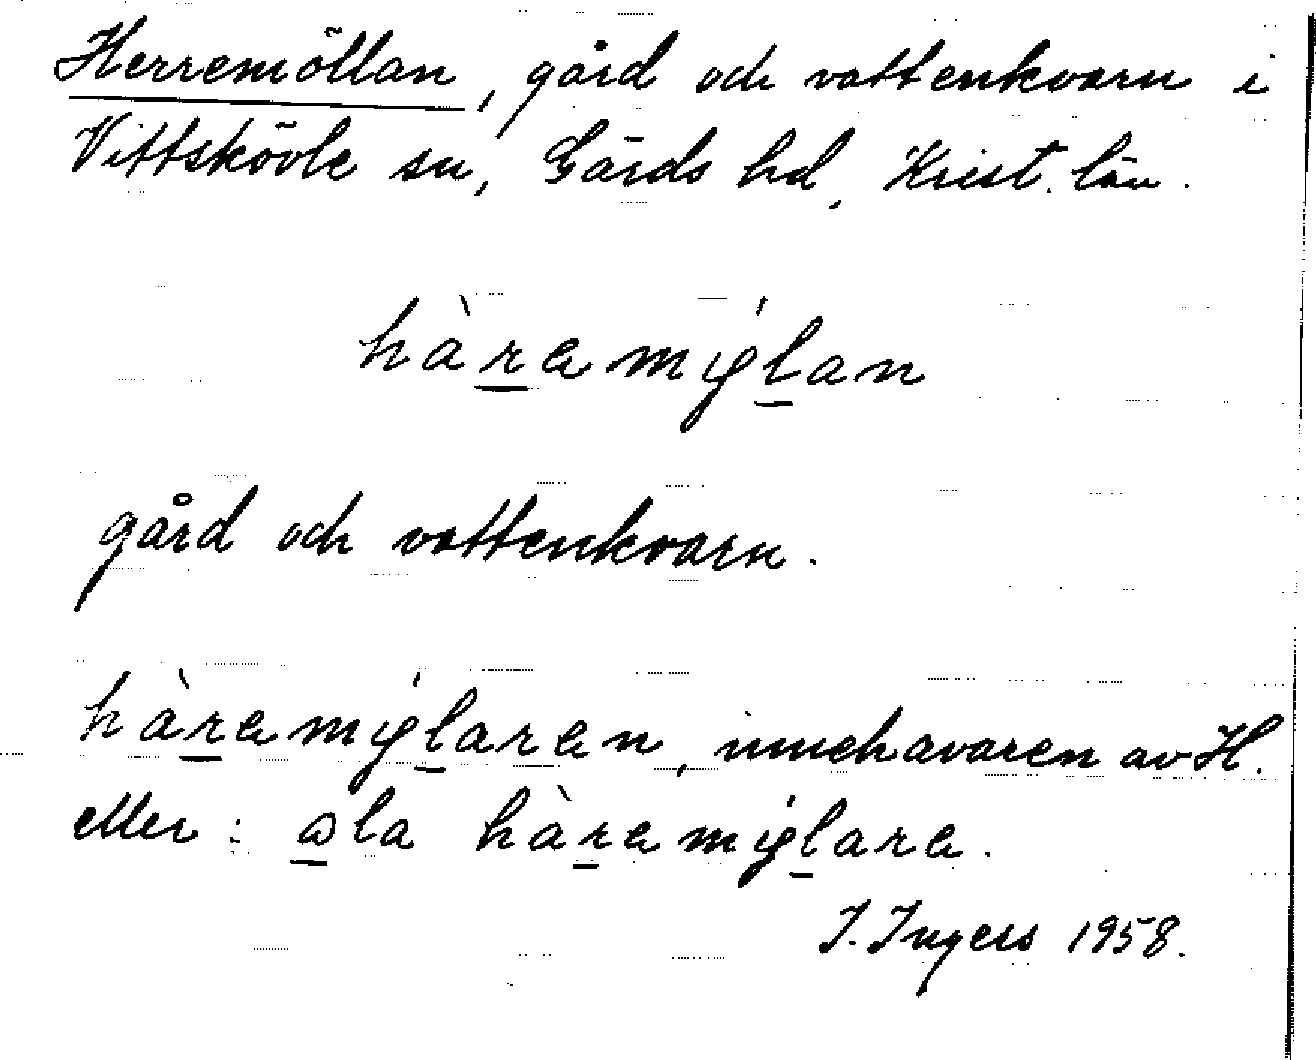 Herremöllan, gård och vattenkvarn i
Vittskövle sn, Gärds hd, Krist. län.
hàramýlan
gård och vattenkvarn.
hàramýlaran, innehavaren av H.
eller: ola hàramýlara.
I. Ingers 1958.